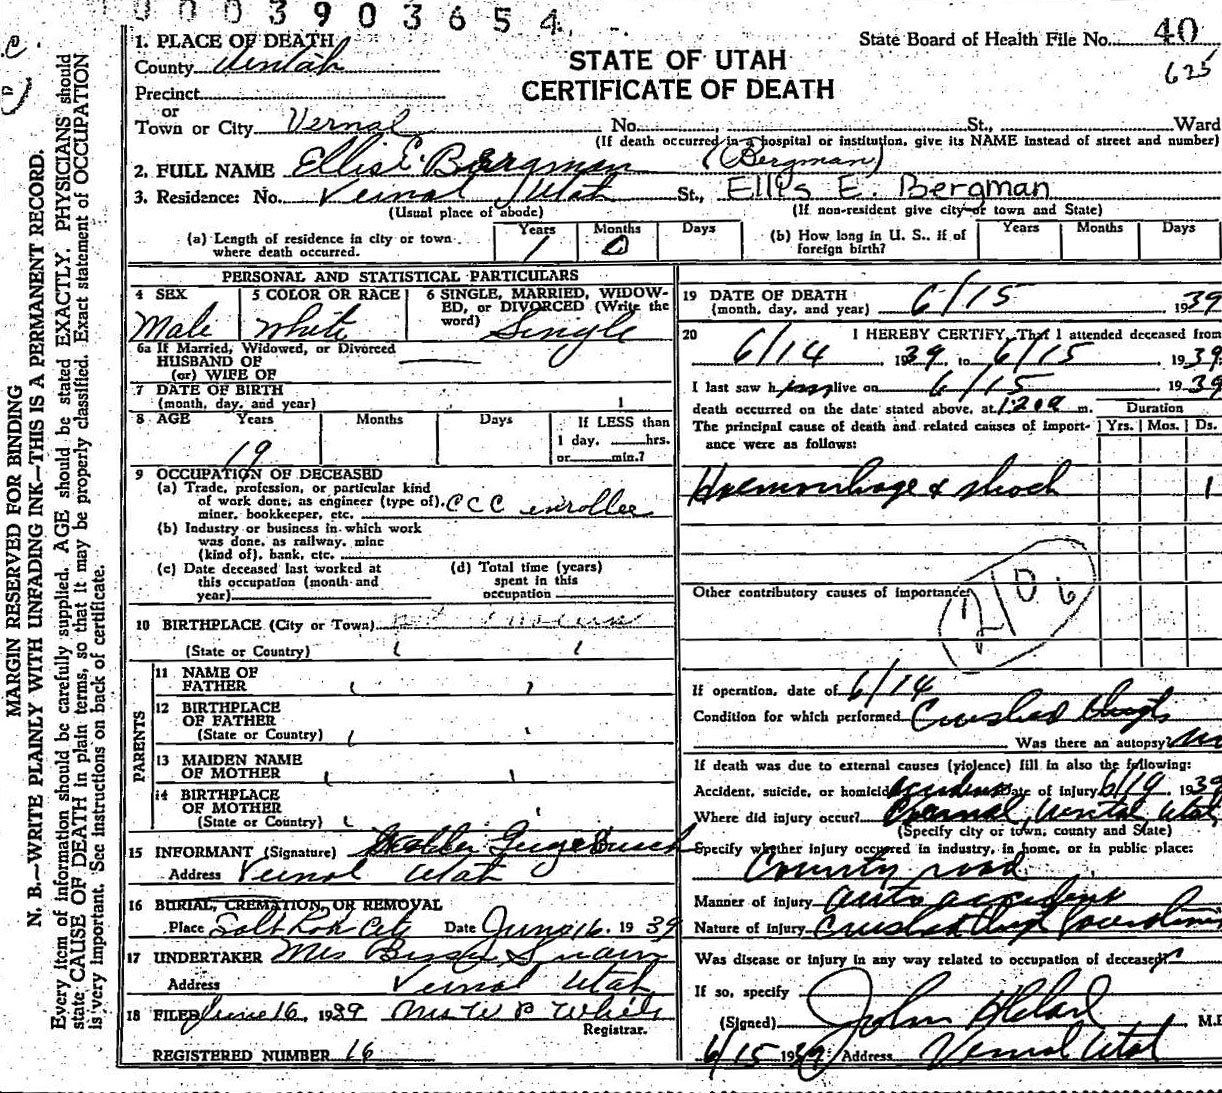 0003903654
State Board of Health File No. 40
625
STATE OF UTAH
CERTIFICATE OF DEATH
MARGIN RESERVED FOR BINDING
N. B.—WRITE PLAINLY WITH UNFADING INK—THIS IS A PERMANENT RECORD.
Every item of information should be carefully supplied. AGE should be stated EXACTLY. PHYSICIANS should
state CAUSE OF DEATH in plain terms, so that it may be properly classified. Exact statement of OCCUPATION
is very important. See instructions on back of certificate.
1. PLACE OF DEATH
County Uintah
Precinct
or
Town or City Vernal No. St., Ward
(If death occurred in a hospital or institution, give its NAME instead of street and number)
2. FULL NAME Ellis E. Bergman (Bergman)
3. Residence: No. Vernal Utah St., Ellis E. Bergman
(Usual place of abode) (If non-resident give city or town and State)
(a) Length of residence in city or town where death occurred. Years 1 Months 0 Days
(b) How long in U. S., if of foreign birth? Years Months Days
PERSONAL AND STATISTICAL PARTICULARS
4 SEX Male
5 COLOR OR RACE White
6 SINGLE, MARRIED, WIDOWED, or DIVORCED (Write the word) Single
6a If Married, Widowed, or Divorced
HUSBAND OF
(or) WIFE OF
7 DATE OF BIRTH
(month, day, and year)
8 AGE Years 19 Months Days If LESS than
1 day, hrs.
or min.?
9 OCCUPATION OF DECEASED
(a) Trade, profession, or particular kind
of work done, as engineer (type of),
miner, bookkeeper, etc. CCC enrollee
(b) Industry or business in which work
was done, as railway, mine
(kind of), bank, etc.
(c) Date deceased last worked at
this occupation (month and
year)
(d) Total time (years)
spent in this
occupation
10 BIRTHPLACE (City or Town)
(State or Country)
PARENTS
11 NAME OF
FATHER
12 BIRTHPLACE
OF FATHER
(State or Country)
13 MAIDEN NAME
OF MOTHER
14 BIRTHPLACE
OF MOTHER
(State or Country)
15 INFORMANT (Signature)
Address Vernal Utah
16 BURIAL, CREMATION, OR REMOVAL
Place Salt Lake City Date June 16, 1939
17 UNDERTAKER Mrs
Address Vernal Utah
18 FILED June 16, 1939 Mrs W P White
Registrar.
REGISTERED NUMBER 16
19 DATE OF DEATH
(month, day, and year) 6/15 1939
20 I HEREBY CERTIFY, That I attended deceased from
6/14, 1939 to 6/15, 1939
I last saw him alive on 6/15 1939
death occurred on the date stated above, at m.
Duration
The principal cause of death and related causes of importance were as follows: Yrs. Mos. Ds.
Haemorrhage & shock 1
Other contributory causes of importance:
210b
If operation, date of 6/14
Condition for which performed Crushed thigh
Was there an autopsy? no
If death was due to external causes (violence) fill in also the following:
Accident, suicide, or homicide accident Date of injury 6/14 1939
Where did injury occur? Vernal, Uintah Utah
(Specify city or town, county and State)
Specify whether injury occurred in industry, in home, or in public place:
County road
Manner of injury auto accident
Nature of injury Crushed thigh
Was disease or injury in any way related to occupation of deceased?
If so, specify
(Signed) John M.D.
6/15 1939 Address Vernal Utah